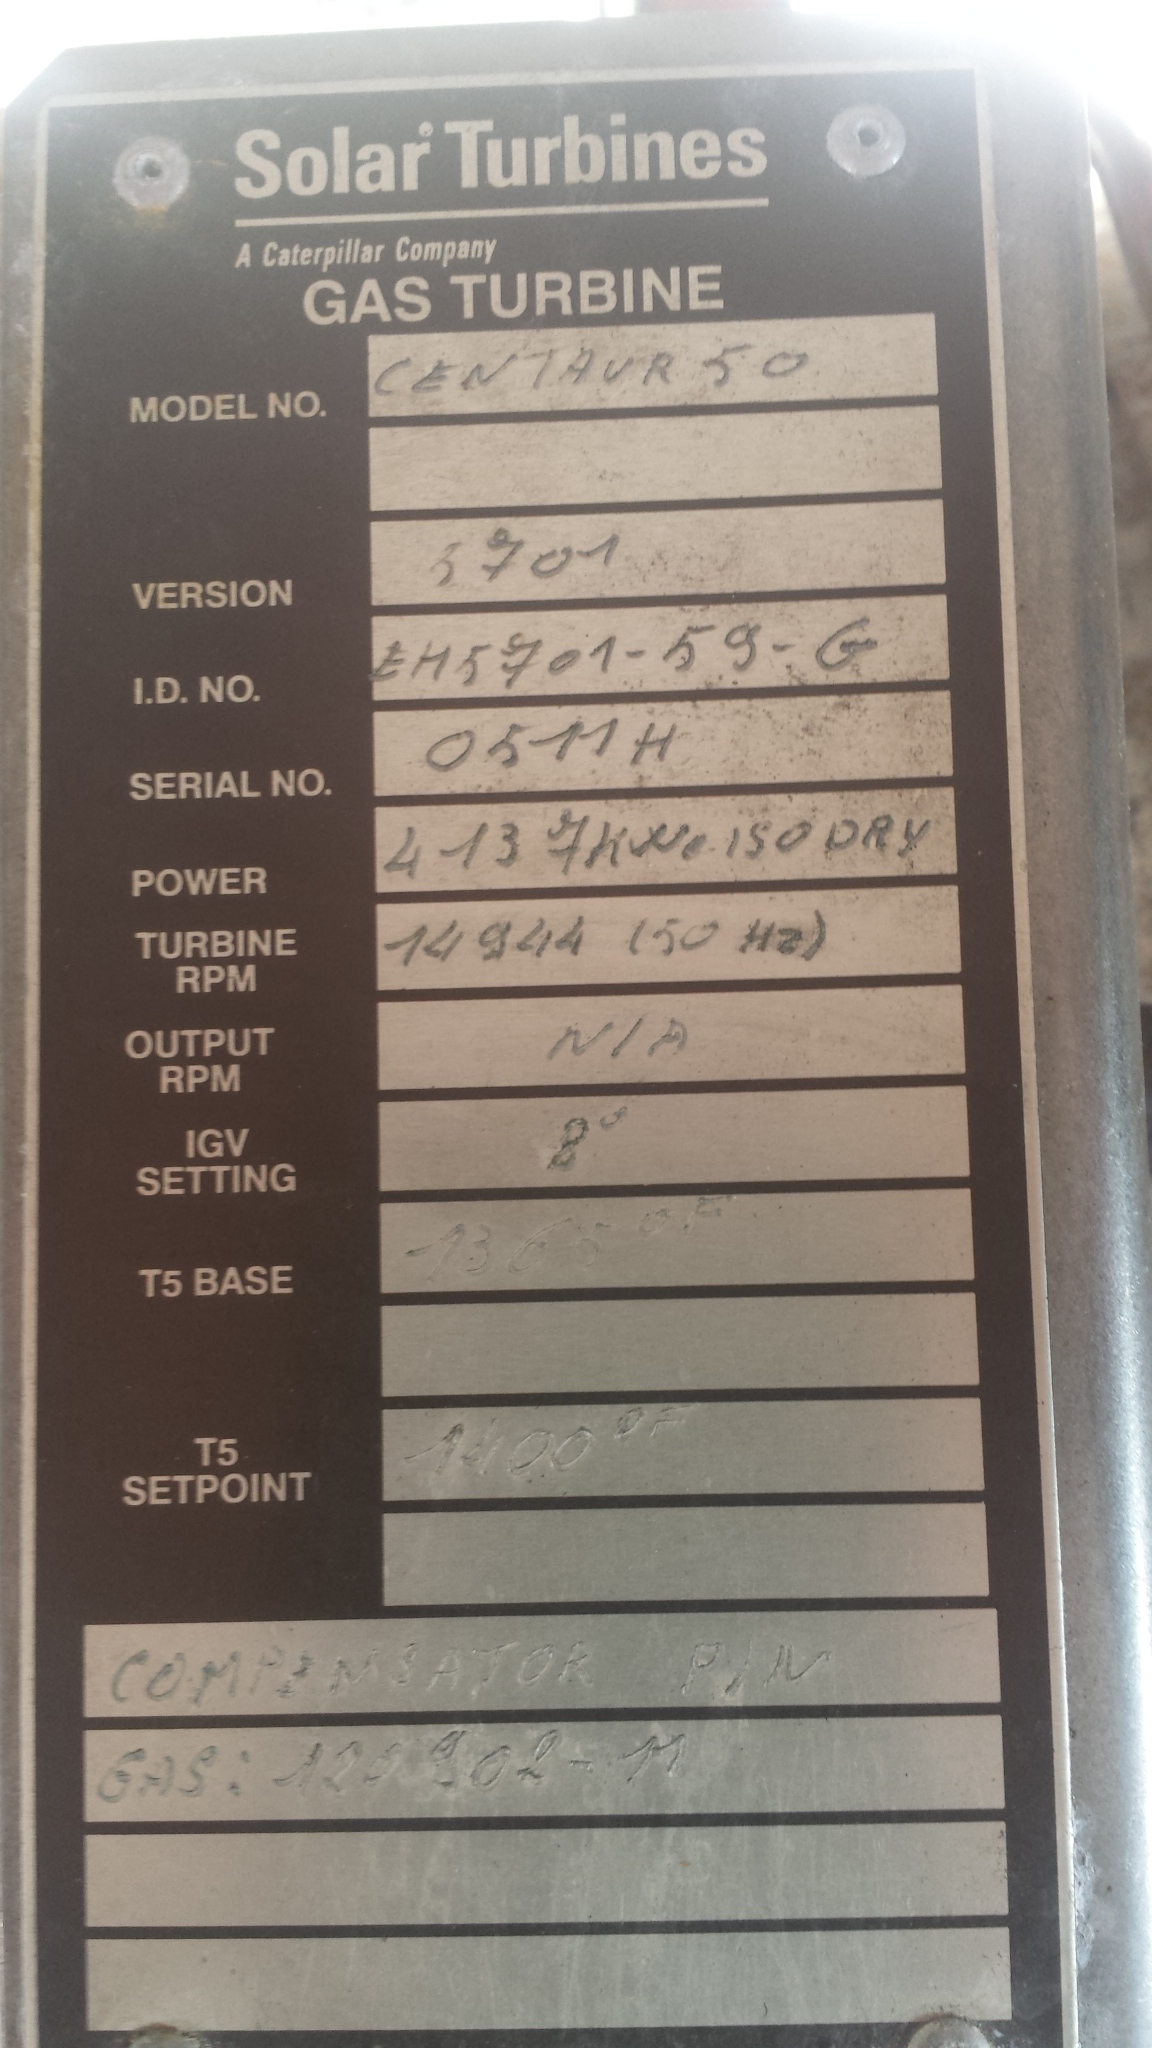 Solar® Turbines
A Caterpillar Company
GAS TURBINE
MODEL NO. CENTAUR 50
VERSION 5701
I.D. NO. EH5701-59-G
SERIAL NO. 0511H
POWER 4137KWe ISO DRY
TURBINE RPM 14944 (50 Hz)
OUTPUT RPM N/A
IGV SETTING 8°
T5 BASE 1365°F
T5 SETPOINT 1400°F
COMPENSATOR P/N
GAS: